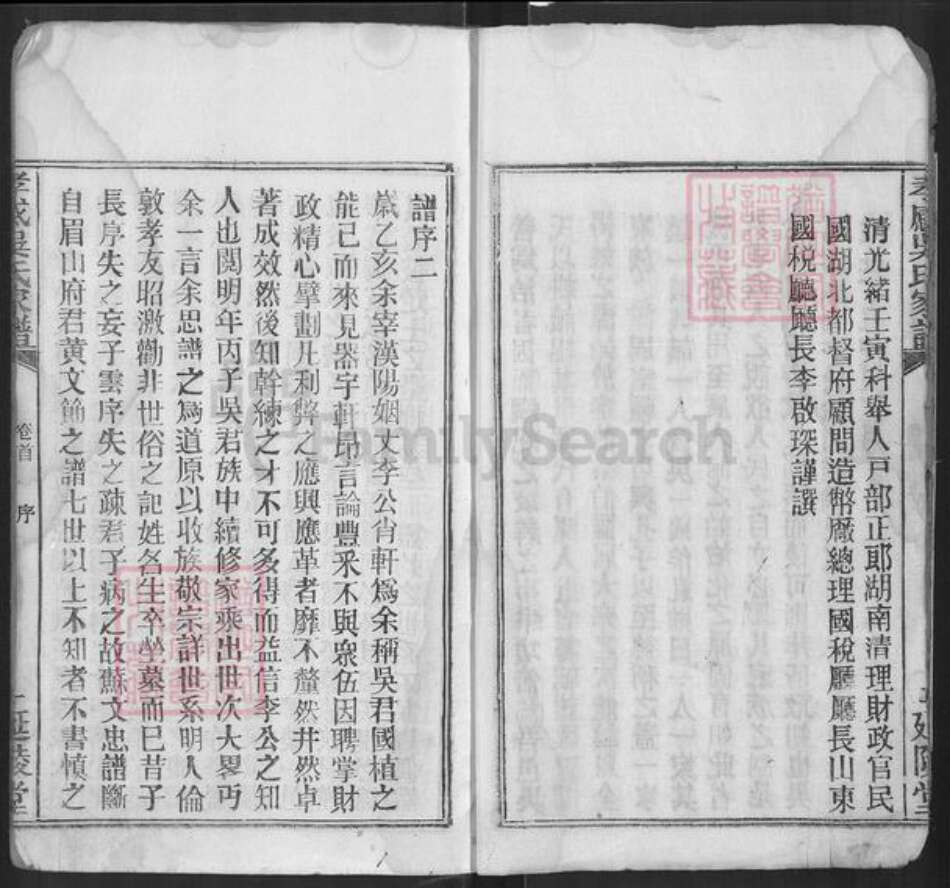 清光緒壬寅科舉人戸部正郎湖南清理財政官民
國湖北都督府顧問造幣厰總理國稅廳廳長山東
國稅廳廳長李啟琛謹譔
譜序二
嵗乙亥余宰漢陽姻丈李公肖軒爲余稱吳君國植之
能已而來見器宇軒昂言論豐釆不與衆伍因聘掌財
政精心擘劃凡利弊之應興應革者靡不釐然井然卓
著成效然後知幹練之才不可多得而益信李公之知
人也閱明年丙子吳君族中續修家乘出世次大畧丐
余一言余思譜之爲道原以收族敬宗詳世系明人倫
敦孝友昭激勸非世俗之記姓名生卒坐墓而已昔子
長序失之妄子雲序失之疎君子病之故蘇文忠譜斷
自眉山府君黃文節之譜七世以上不知者不書慎之
孝感吳氏家譜
卷首
序
二延陵堂
FamilySearch